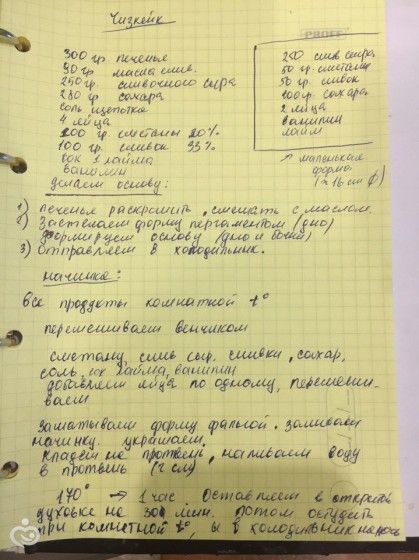 Чизкейк
PROFF
300 гр печенье
90 гр масла слив.
250 гр. сливочного сыра
280 гр сахара
соль щепотка
4 яйца
200 гр сметаны 20%
100 гр. сливок 33%
сок 1 лайма
ванилин
250 слив сыра
50 гр. сметаны
50 гр. сливок
100 гр. сахара
2 яйца
ванилин
лайм
↗ маленькая
форма
(≈ 16 см ∅)
делаем основу:
1) Печенье раскрошить, смешать с маслом.
2) Застелаем форму пергаментом (дно)
формируем основу (дно и бочки)
3) Отправляем в холодильник.
начинка:
Все продукты комнатной t°
перемешиваем венчиком
сметану, слив сыр, сливки, сахар,
соль, сок лайма, ванилин
добавляем яйца по одному, перемеши-
ваем
Заматываем форму фальгой. заливаем
начинку. украшаем.
Кладем на протвень, наливаем воду
в протвень (2 см)
170° → 1 час Оставляем в открытой
духовке на 30 мин. потом остудить
при комнатной t°, и в холодильник на ночь